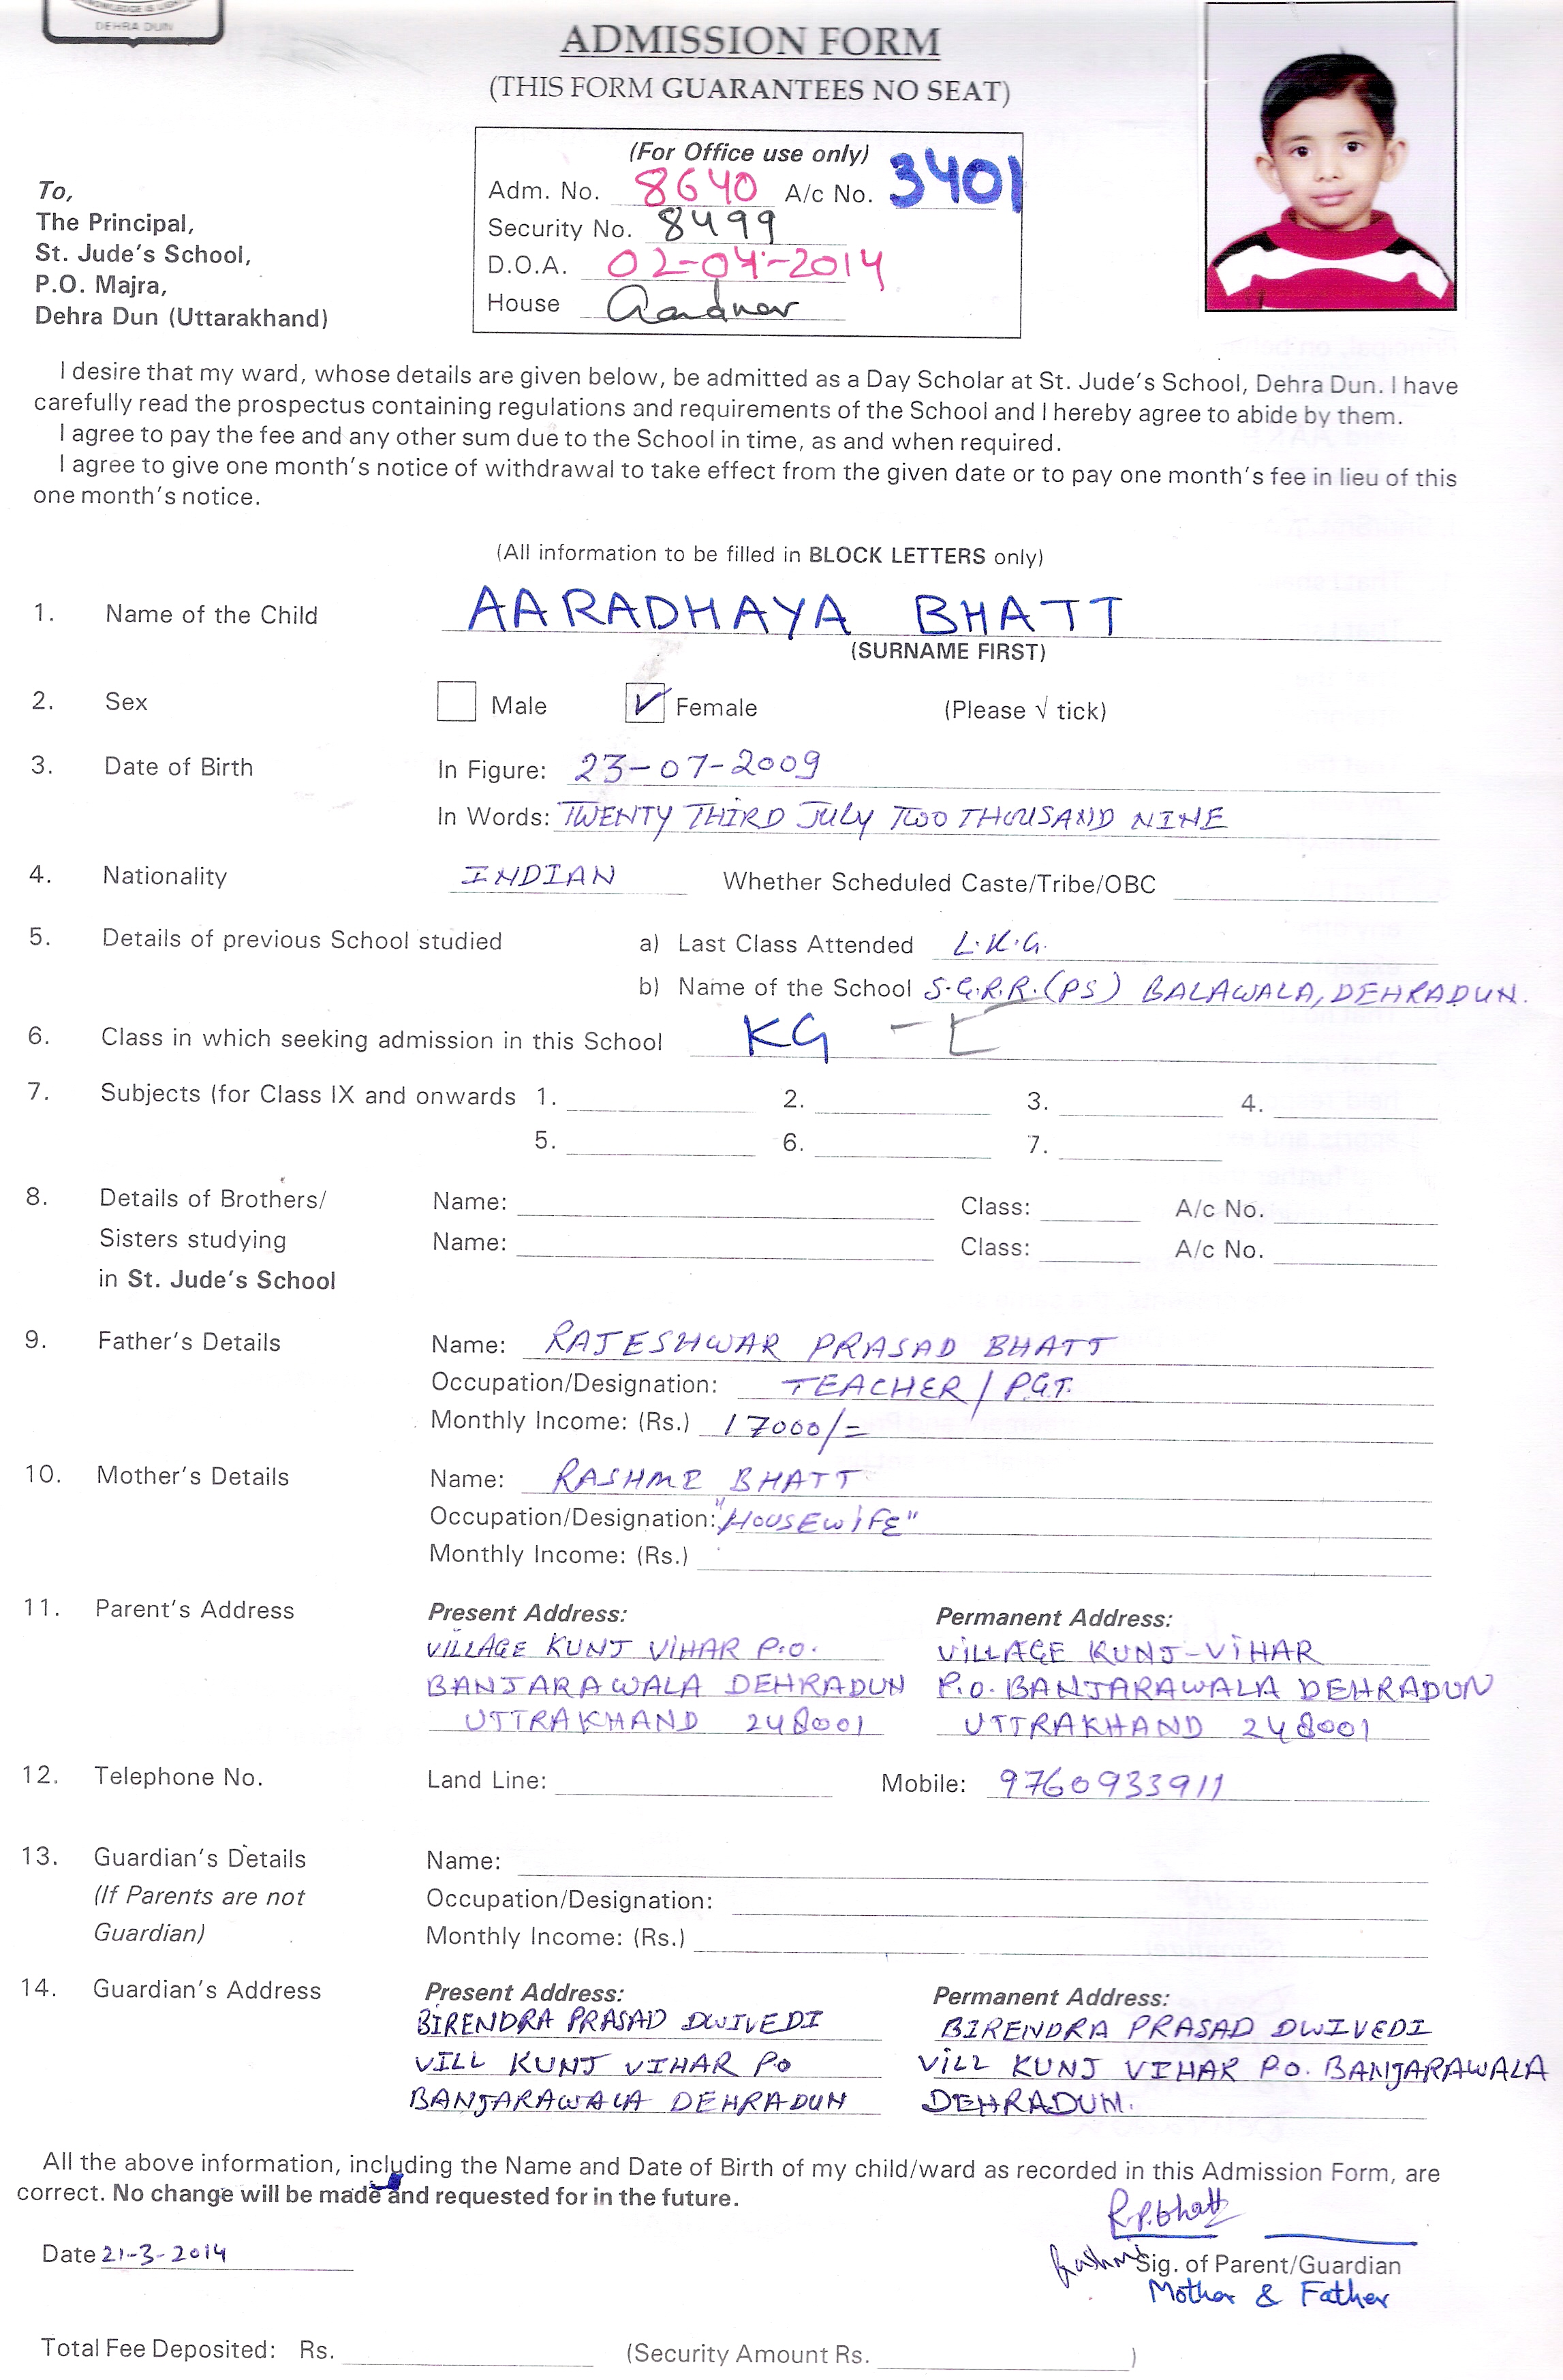 KNOWLEDGE IS LIGHT
DEHRA DUN
ADMISSION FORM
(THIS FORM GUARANTEES NO SEAT)
(For Office use only)
Adm. No. 8640 A/c No. 3401
Security No. 8499
D.O.A. 02-04-2014
House
To,
The Principal,
St. Jude's School,
P.O. Majra,
Dehra Dun (Uttarakhand)
I desire that my ward, whose details are given below, be admitted as a Day Scholar at St. Jude's School, Dehra Dun. I have
carefully read the prospectus containing regulations and requirements of the School and I hereby agree to abide by them.
I agree to pay the fee and any other sum due to the School in time, as and when required.
I agree to give one month's notice of withdrawal to take effect from the given date or to pay one month's fee in lieu of this
one month's notice.
(All information to be filled in BLOCK LETTERS only)
1. Name of the Child AARADHAYA BHATT
(SURNAME FIRST)
2. Sex Male ✓ Female (Please √ tick)
3. Date of Birth In Figure: 23-07-2009
In Words: TWENTY THIRD JULY TWO THOUSAND NINE
4. Nationality INDIAN Whether Scheduled Caste/Tribe/OBC
5. Details of previous School studied a) Last Class Attended L.K.G.
b) Name of the School S.G.R.R. (PS) BALAWALA, DEHRADUN.
6. Class in which seeking admission in this School KG - E
7. Subjects (for Class IX and onwards 1. 2. 3. 4.
5. 6. 7.
8. Details of Brothers/ Name: Class: A/c No.
Sisters studying Name: Class: A/c No.
in St. Jude's School
9. Father's Details Name: RAJESHWAR PRASAD BHATT
Occupation/Designation: TEACHER / P.G.T.
Monthly Income: (Rs.) 17000/=
10. Mother's Details Name: RASHMI BHATT
Occupation/Designation: "HOUSEWIFE"
Monthly Income: (Rs.)
11. Parent's Address Present Address: Permanent Address:
VILLAGE KUNJ VIHAR P.O. VILLAGE KUNJ-VIHAR
BANJARAWALA DEHRADUN P.O. BANJARAWALA DEHRADUN
UTTRAKHAND 248001 UTTRAKHAND 248001
12. Telephone No. Land Line: Mobile: 9760933911
13. Guardian's Details Name:
(If Parents are not Occupation/Designation:
Guardian) Monthly Income: (Rs.)
14. Guardian's Address Present Address: Permanent Address:
BIRENDRA PRASAD DWIVEDI BIRENDRA PRASAD DWIVEDI
VILL KUNJ VIHAR PO VILL KUNJ VIHAR P.O. BANJARAWALA
BANJARAWALA DEHRADUN DEHRADUN.
All the above information, including the Name and Date of Birth of my child/ward as recorded in this Admission Form, are
correct. No change will be made and requested for in the future.
R.P.Bhatt
Date 21-3-2014
Rashmi Sig. of Parent/Guardian
Mother & Father
Total Fee Deposited: Rs. (Security Amount Rs. )